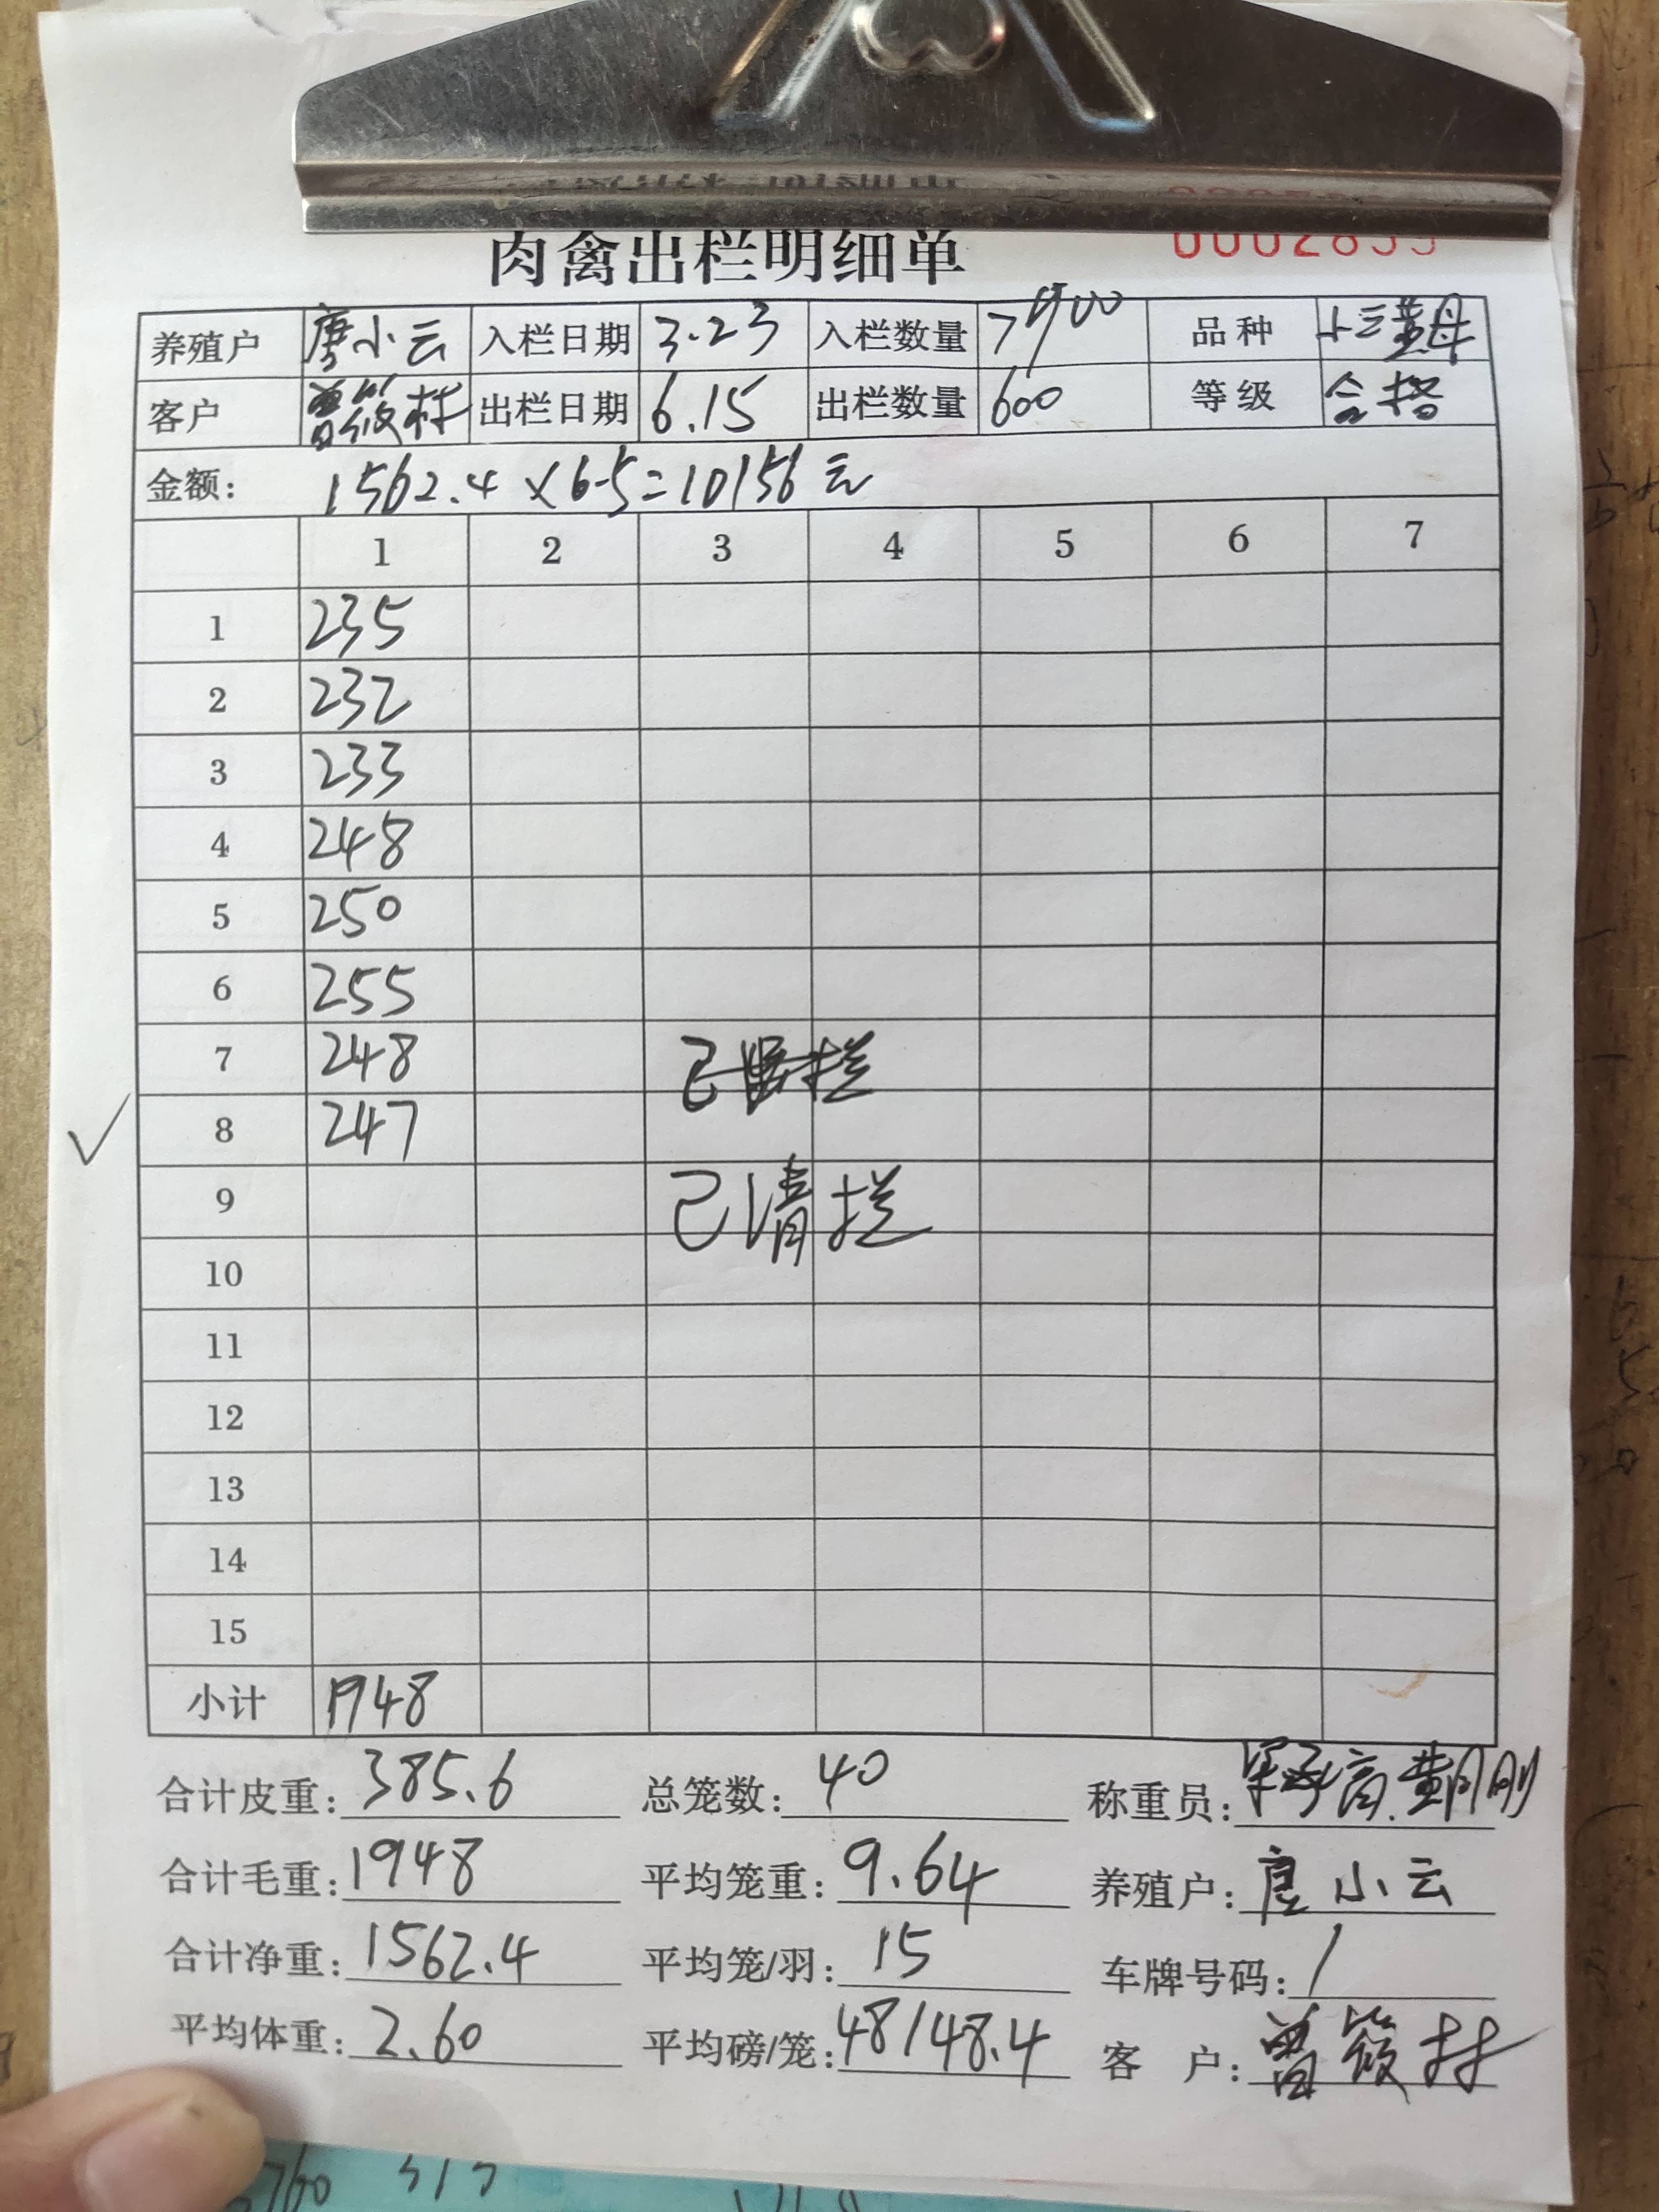 肉禽出栏明细单 0002855
养殖户 唐小云 入栏日期 3.23 入栏数量 7900 品种 小三黄母
客户 曾筱林 出栏日期 6.15 出栏数量 600 等级 合格
金额： 1562.4×6.5=10156元
1 2 3 4 5 6 7
1 235
2 232
3 233
4 248
5 250
6 255
7 248
8 247
9 已清拦
10
11
12
13
14
15
小计 1948
合计皮重： 385.6 总笼数： 40 称重员： 黄刚
合计毛重： 1948 平均笼重： 9.64 养殖户： 唐小云
合计净重： 1562.4 平均笼/羽： 15 车牌号码： /
平均体重： 2.60 平均磅/笼： 48/48.4 客户： 曾筱林
760 313